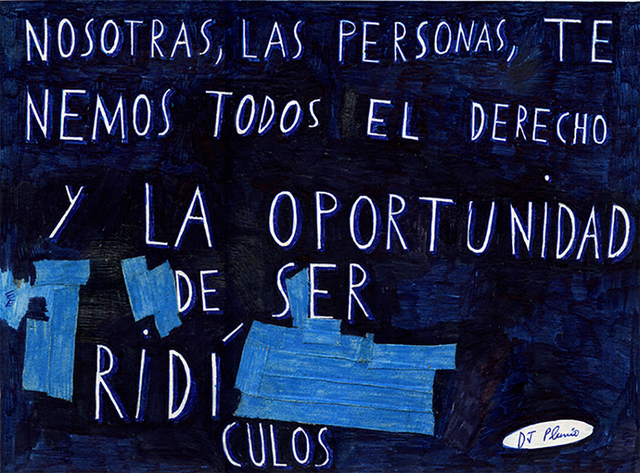 NOSOTRAS, LAS PERSONAS, TE
NEMOS TODOS EL DERECHO
Y LA OPORTUNIDAD
DE SER
RiDÍ
CULOS
DJ